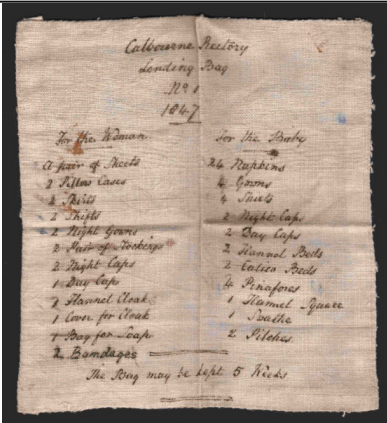 Calbourne Rectory
Lending Bag
No 1
1847
For the Woman.
A pair of Sheets
2 Pillow Cases
2 Skirts
2 Shifts
2 Night Gowns
2 Pair of Stockings
2 Night Caps
1 Day Caps
1 Flannel Cloak
1 Cover for Cloak
1 Bag for Soap
2 Bandages
For the Baby
24 Napkins
4 Gowns
4 Shirts
2 Night Caps
2 Day Caps
2 Flannel Beds
2 Calico Beds
4 Pinafores
1 Flannel Square
1 Swathe
2 Pilches
The Bag may be kept 5 Weeks